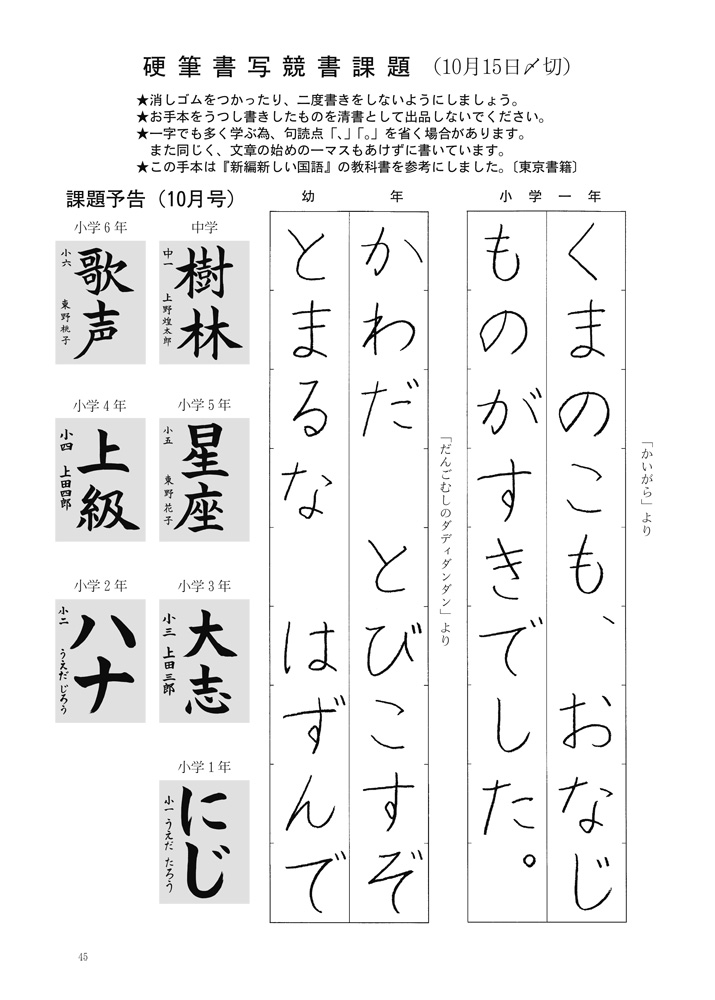 硬筆書写競書課題 (10月15日〆切)
★消しゴムをつかったり、二度書きをしないようにしましょう。
★お手本をうつし書きしたものを清書として出品しないでください。
★一字でも多く学ぶ為、句読点「、」「。」を省く場合があります。
また同じく、文章の始めの一マスもあけずに書いています。
★この手本は『新編新しい国語』の教科書を参考にしました。〔東京書籍〕
小学一年
「かいがら」より
くまのこも、おなじ
ものがすきでした。
幼年
「だんごむしのダディダンダン」より
かわだ とびこすぞ
とまるな はずんで
課題予告(10月号)
中学
樹林
中一 上野煌太郎
小学6年
歌声
小六 東野桃子
小学5年
星座
小五 東野花子
小学4年
上級
小四 上田四郎
小学3年
大志
小三 上田三郎
小学2年
ハナ
小二 うえだじろう
小学1年
にじ
小一 うえだ たろう
45